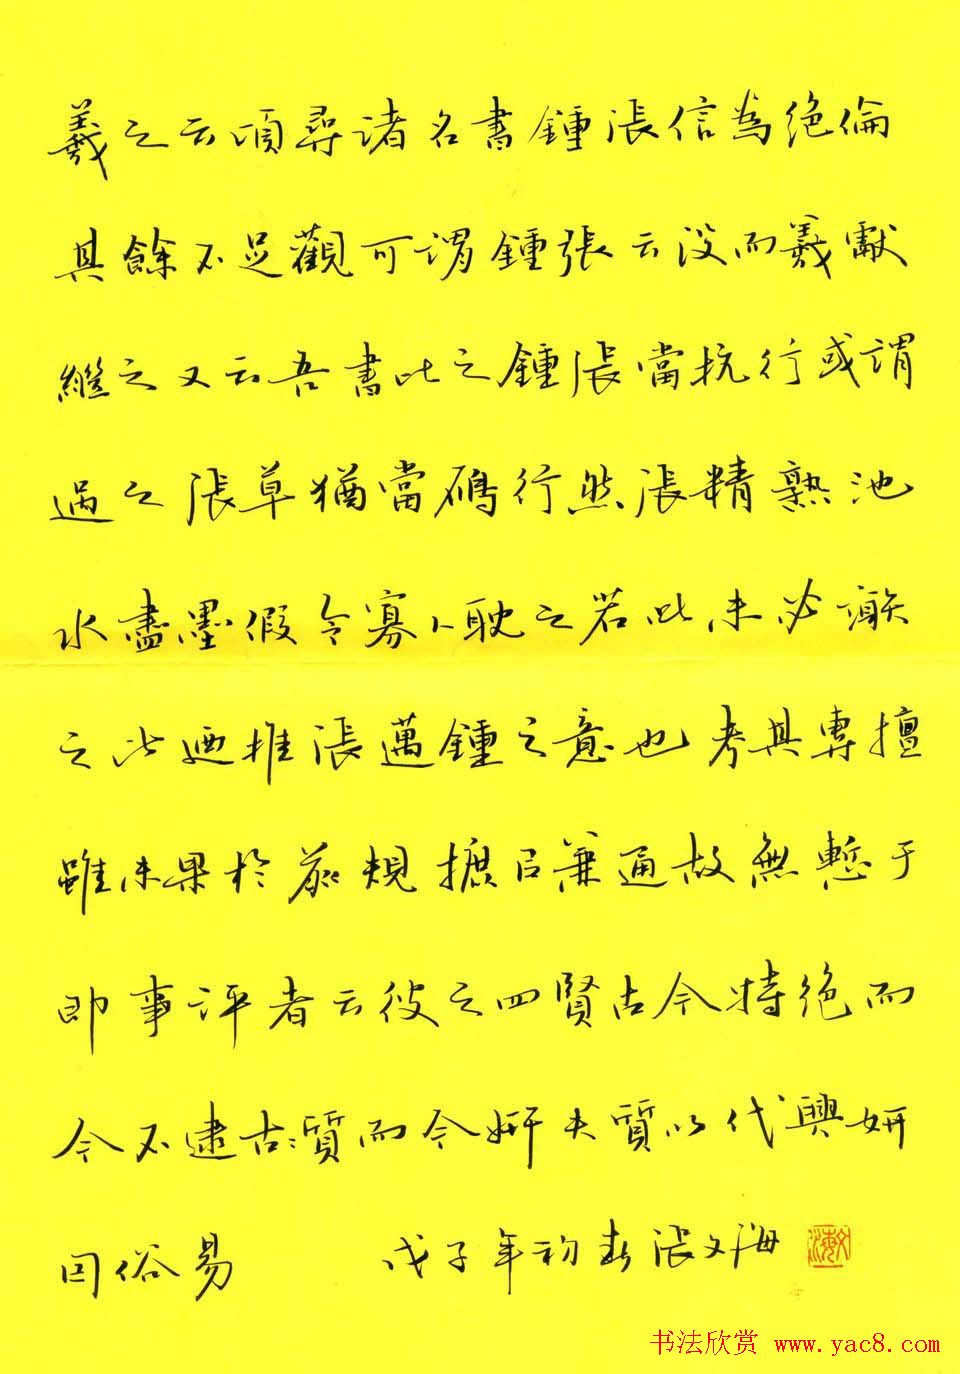 羲之云頃尋諸名書鍾張信為絕倫
其餘不足觀可謂鍾張云沒而羲獻
繼之又云吾書比之鍾張當抗行或謂
過之張草猶當鴈行然張精熟池
水盡墨假令寡人耽之若此未必謝
之此迺推張邁鍾之意也考其專擅
雖未果於前規摭以兼通故無慙于
即事評者云彼之四賢古今特絕而
今不逮古〻質而今妍夫質以代興妍
因俗易 戊子年初春張文海
文海
书法欣赏 www.yac8.com